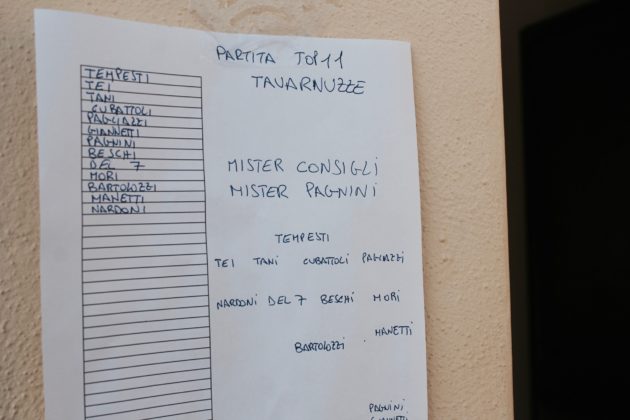 PARTITA TOP 11
TAVARNUZZE
TEMPESTI
TEI
TANI
CUBATTOLI
PAGLIAZZI
GIANNETTI
PAGNINI
BESCHI
DEL 7
MORI
BARTOLOZZI
MANETTI
NARDONI
MISTER CONSIGLI
MISTER PAGNINI
TEMPESTI
TEI TANI CUBATTOLI PAGLIAZZI
NARDONI DEL 7 BESCHI MORI
MANETTI
BARTOLOZZI
PAGNINI